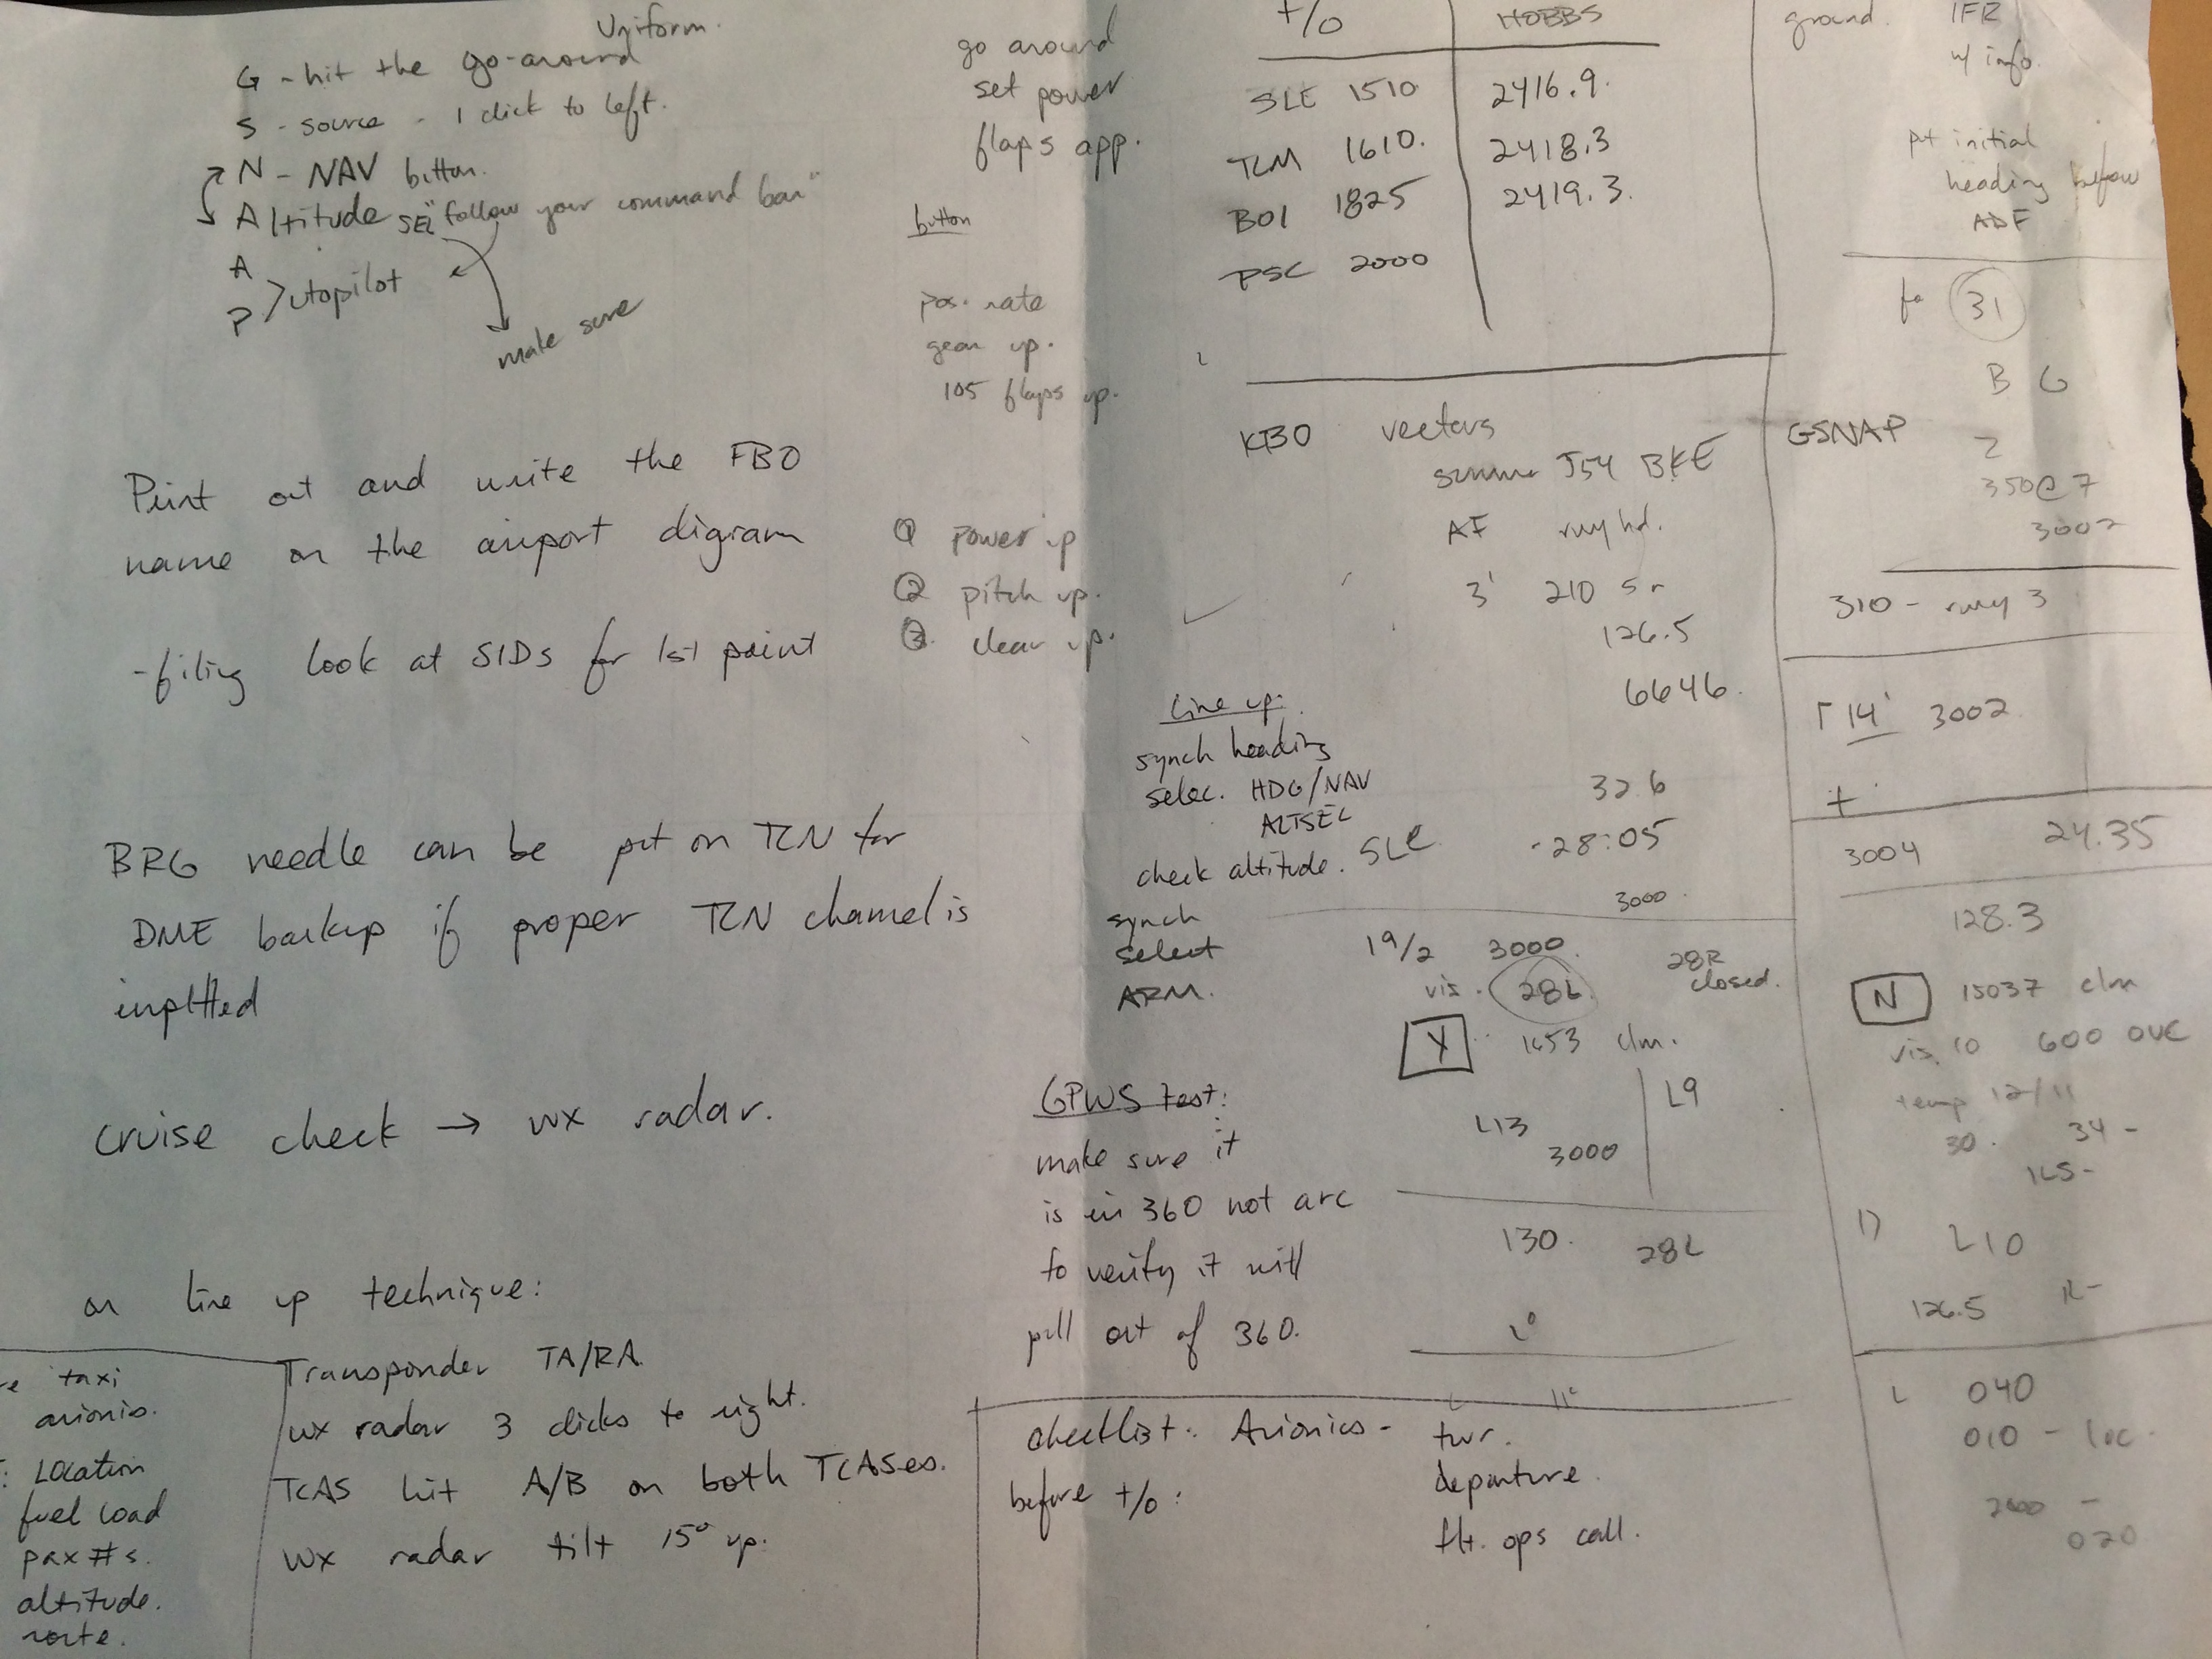 Uniform.
G - hit the go-around
S - source - 1 click to left.
N - NAV button.
Altitude SEL "follow your command bar"
A
P > utopilot
make sure
Print out and write the FBO
name on the airport digram
- filing look at SIDs for 1st point
BRG needle can be put on TCN for
DME backup if proper TCN channel is
inputted
cruise check → wx radar.
on line up technique:
Transponder TA/RA
wx radar 3 clicks to right.
TCAS hit A/B on both TCASes.
wx radar tilt 15° up.
taxi
avionics.
: Location
fuel load
pax #s.
altitude.
route.
go around
set power
flaps app.
button
pos. rate
gear up.
105 flaps up.
① power up
② pitch up.
③ clear up.
Line up:
synch heading
selec. HDG/NAV
ALTSEL
check altitude.
synch
select
ARM.
GPWS test:
make sure it
is in 360 not arc
to verify it will
pull out of 360.
checklist: Avionics - twr.
before t/o: departure
flt. ops call.
T/O HOBBS
SLE 1510 2416.9.
TLM 1610. 2418.3
BOI 1825 2419.3.
PSC 2000
vectors
J54 BKE
AF rwy hd.
3' 210
126.5
6646.
32.6
SLE -28:05
3000
19/2 3000
vis. 28L 28R closed.
Y 1653 clm.
L9
L13
3000
130. 28L
ground. IFR
w/ info.
put initial
heading before
ADF
31
B G
GSNAP
Z
350@7
3002
310 - rwy 3
14' 3002
+
3004 24.35
128.3
N 15037 clm
vis. 10 600 OVC
temp 12/11
30. 34 -
ILS-
L10
126.5
L 040
010 - loc.
2600 -
020